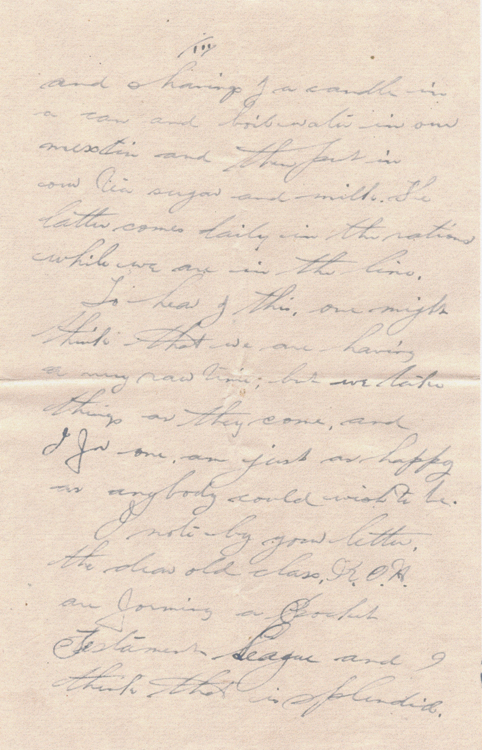 III
and shavings of a candle in
a can and boil water in our
mess tin and then put in
our tea sugar and milk. The
latter comes daily in the rations
while we are in the line.
To hear of this, one might
think that we are having
a very raw time; but we take
things as they come, and
I for one, am just as happy
as anybody could wish to be.
I note by your letter,
the dear old class, K.O.K.
are forming a Pocket
Testament League and I
think that is splendid.